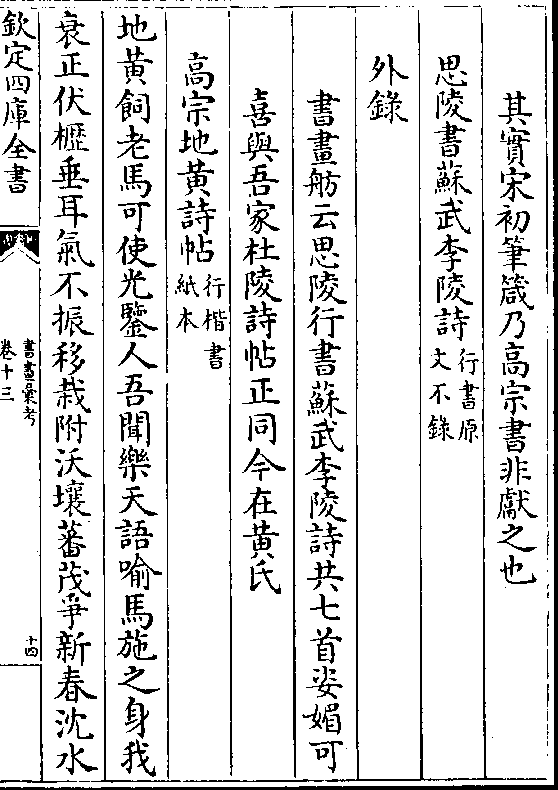 其實宋初筆箴乃高宗書非獻之也
思陵書蘇武李陵詩行書原文不錄
外錄
書畫舫云思陵行書蘇武李陵詩共七首姿媚可
喜與吾家杜陵詩帖正同今在黄氏
高宗地黄詩帖行楷書紙本
地黄飼老馬可使光鑒人吾聞樂天語喻馬施之身我
衰正伏櫪垂耳氣不振移栽附沃壤蕃茂爭新春沈水
欽定四庫全書
書畫彙考
卷十三
十四